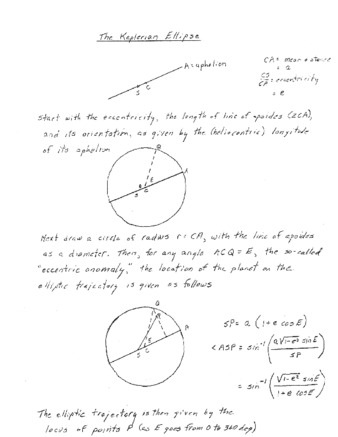 The Keplerian Ellipse
A = aphelion
S C
CA = mean distance
= a
CS/CP = eccentricity
= e
Start with the eccentricity, the length of line of apsides (2CA),
and its orientation, as given by the (heliocentric) longitude
of its aphelion
Q
A
E
S C
Next draw a circle of radius r = CA, with the line of apsides
as a diameter. Then, for any angle ACQ = E, the so-called
"eccentric anomaly," the location of the planet on the
elliptic trajectory is given as follows
Q
P
A
E
S C
SP = a (1+e cos E)
∠ASP = sin⁻¹ (a√1-e² sin E / SP)
= sin⁻¹ (√1-e² sin E / 1+e cos E)
The elliptic trajectory is then given by the
locus of points P (as E goes from 0 to 360 deg)